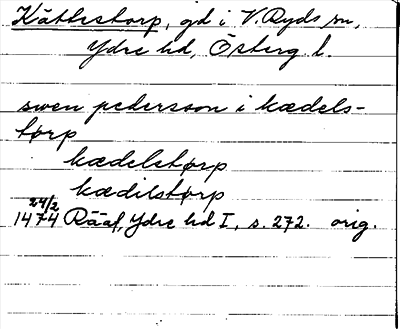 Kättlestorp, gd i V. Ryds sn,
Ydre hd, Österg l.
swen pedersson i kædels-
tørp
kædelstørp
kædilstørp
24/2
1474 Rääf, Ydre hd I, s. 272. orig.